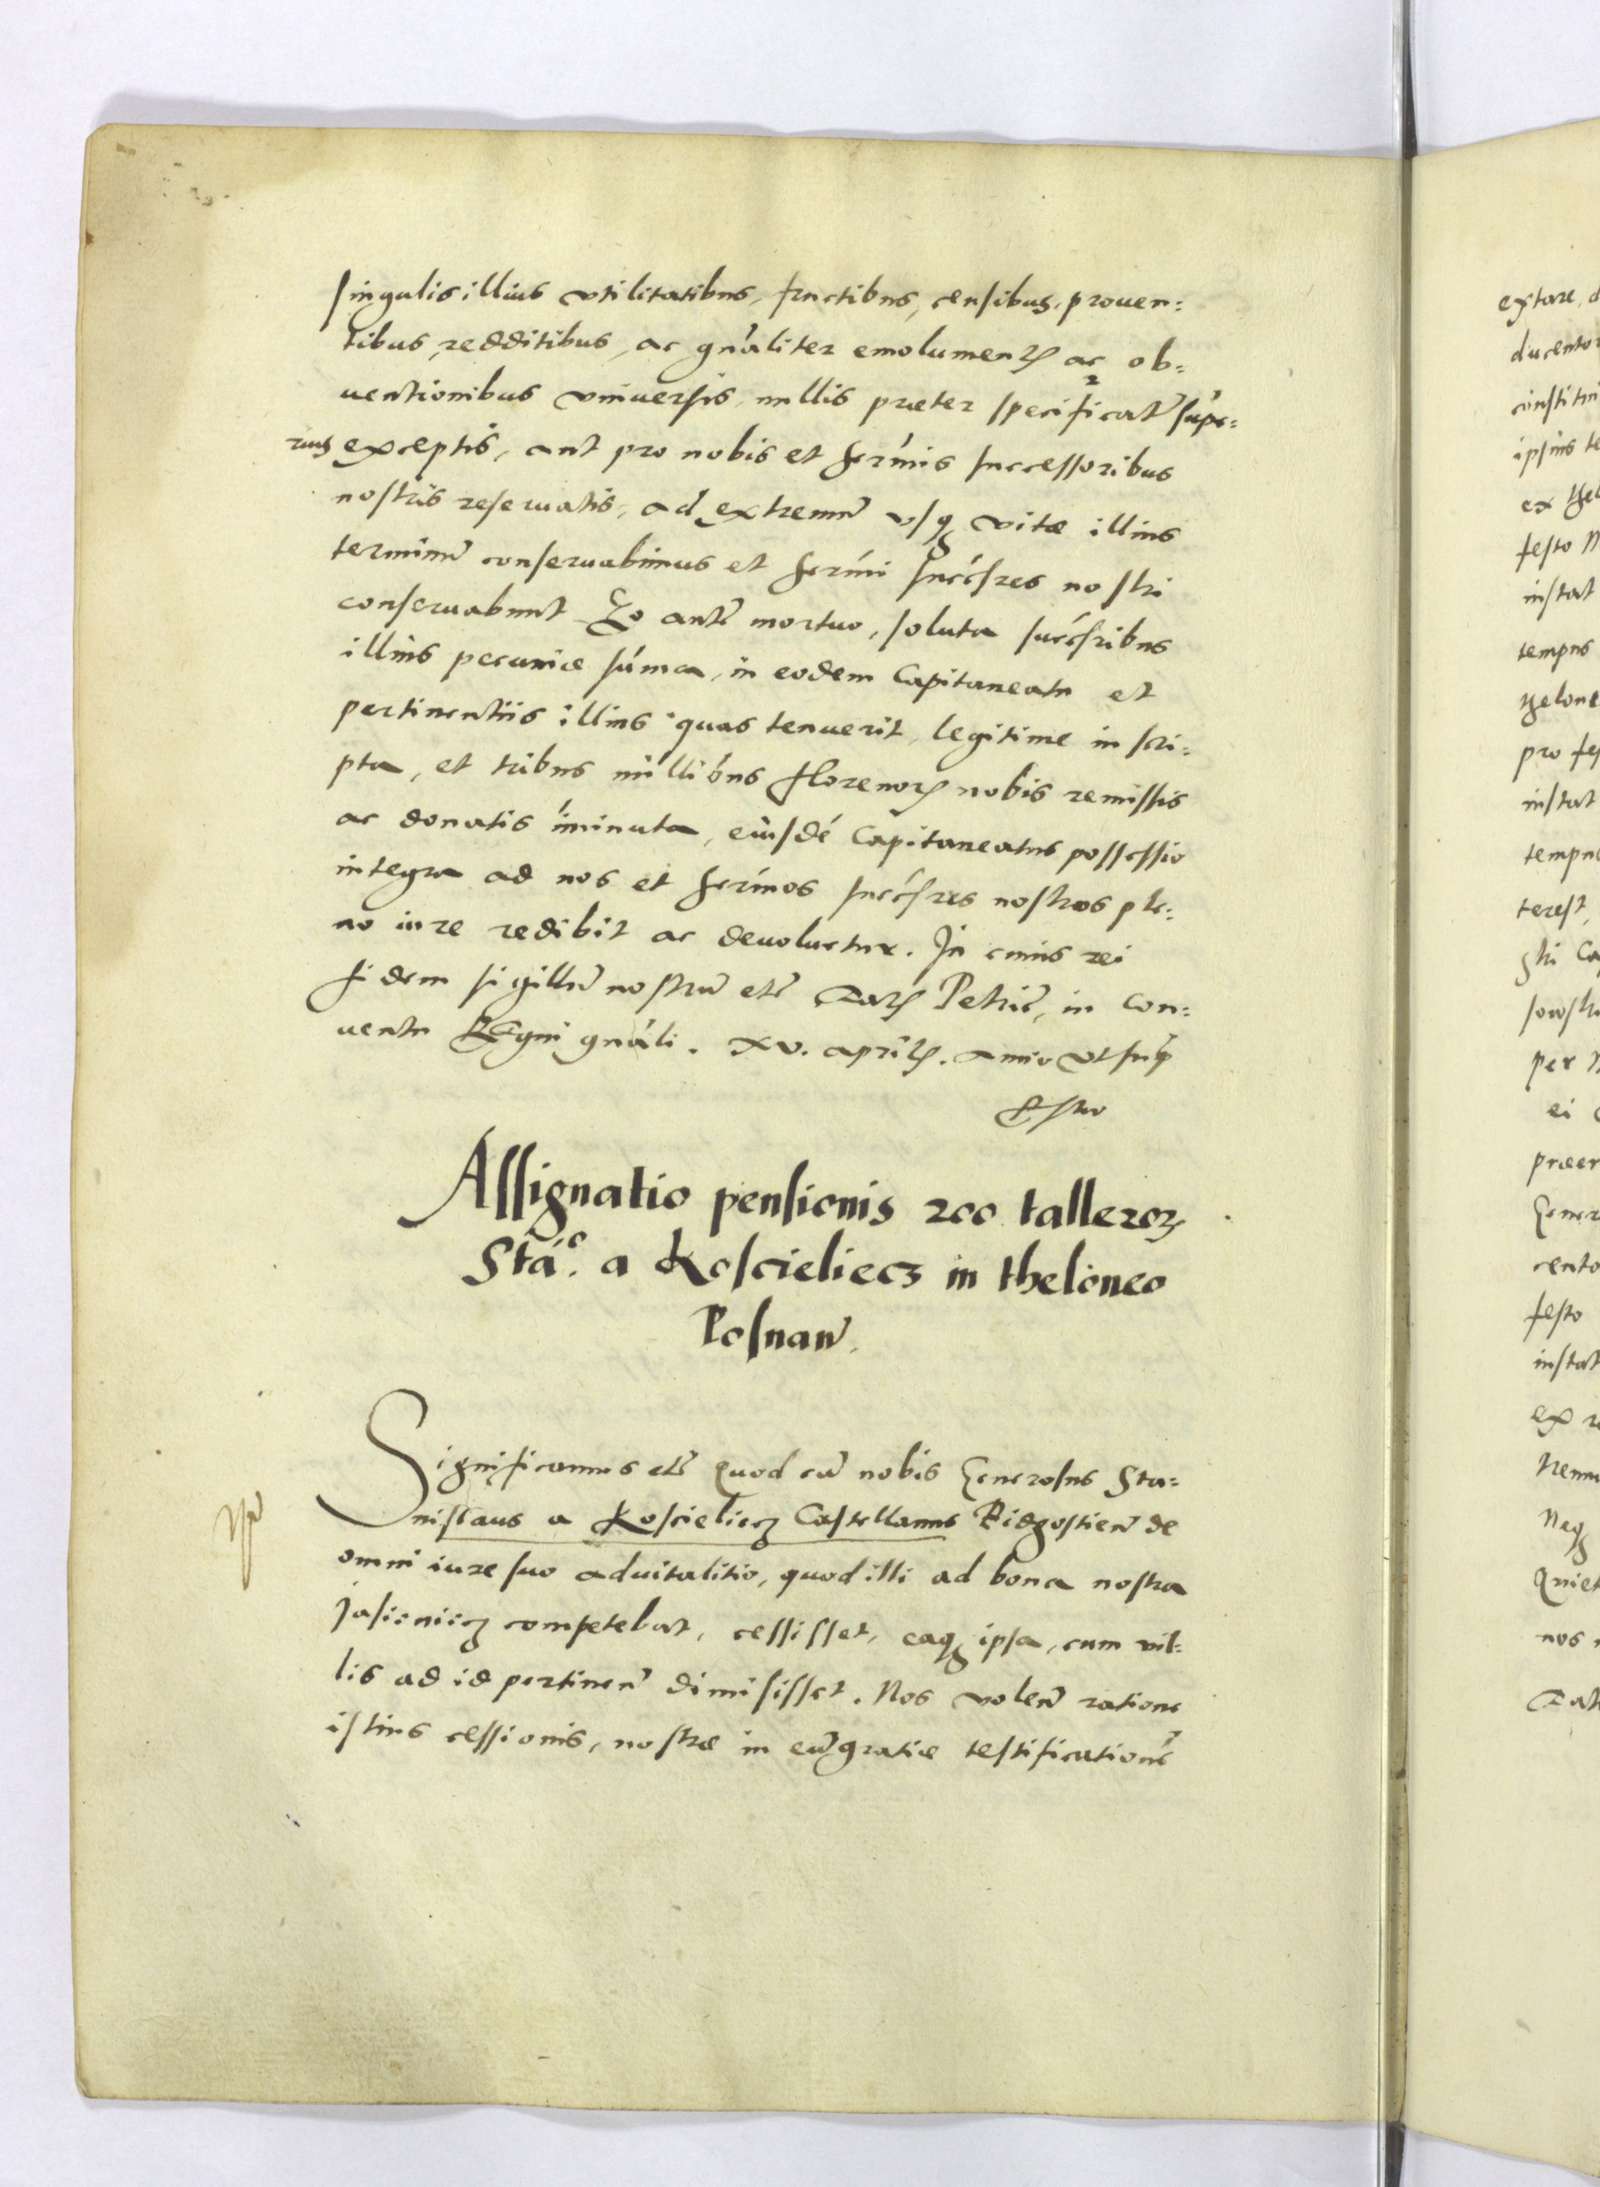 singulis illius vtilitatibus, fructibus, censibus, prouen:
tibus, redditibus, ac gnãliter emolumentꝭ ac ob:
uentionibus vniuersis, nullis præter specificat̃ supe:
rius exceptis, aut pro nobis et serm̃is successoribus
nostris reseruatis, ad extremũ vsqꝫ vitæ illius
terminũ conseruabimus et serm̃i succ̃sres nostri
conseruabunt Eo aut̃ mortuo, soluta succ̃sribus
illius pecuniæ sũma, in eodem Capitaneatu et
pertinentiis illius quas tenuerit, legitime inscri:
pta, et tribus millib̃us florenorꝭ nobis remissis
ac donatis iminuta, eiusdẽ Capitaneatus possessio
integra ad nos et serm̃os succ̃sres nostros ple:
no iure redibit ac deuoluetur. In cuius rei
fidem sigillũ nostrũ etc̃ Datꝭ Petric̃, in Con:
uentu Regni gnãli. XV. aprilꝭ. Anno vt supͣ
Assignatio pensionis 200 tallerorꝫ
Sta͛o. a Koscieliecz in theloneo
Posnan̄.
Significamus etc̃ Quod cũ nobis Generosus Sta:
nislaus a Koscieliecz Castellanus Bidgostien̄ de
omni iure suo aduitalitio, quod illi ad bona nostra
Jasieniecz competebat, cessisset, eaqꝫ ipsa, cum vil:
lis ad id pertinen̄ dimisisset. Nos volen̄ ratione
istius cessionis, nostræ in eũ gratiæ testificationẽ
extare,
constitui
ipsius
festo
instat
tempus
pro
instat
terest,
per
ei
festo
instat
ex
Neqꝫ
nos